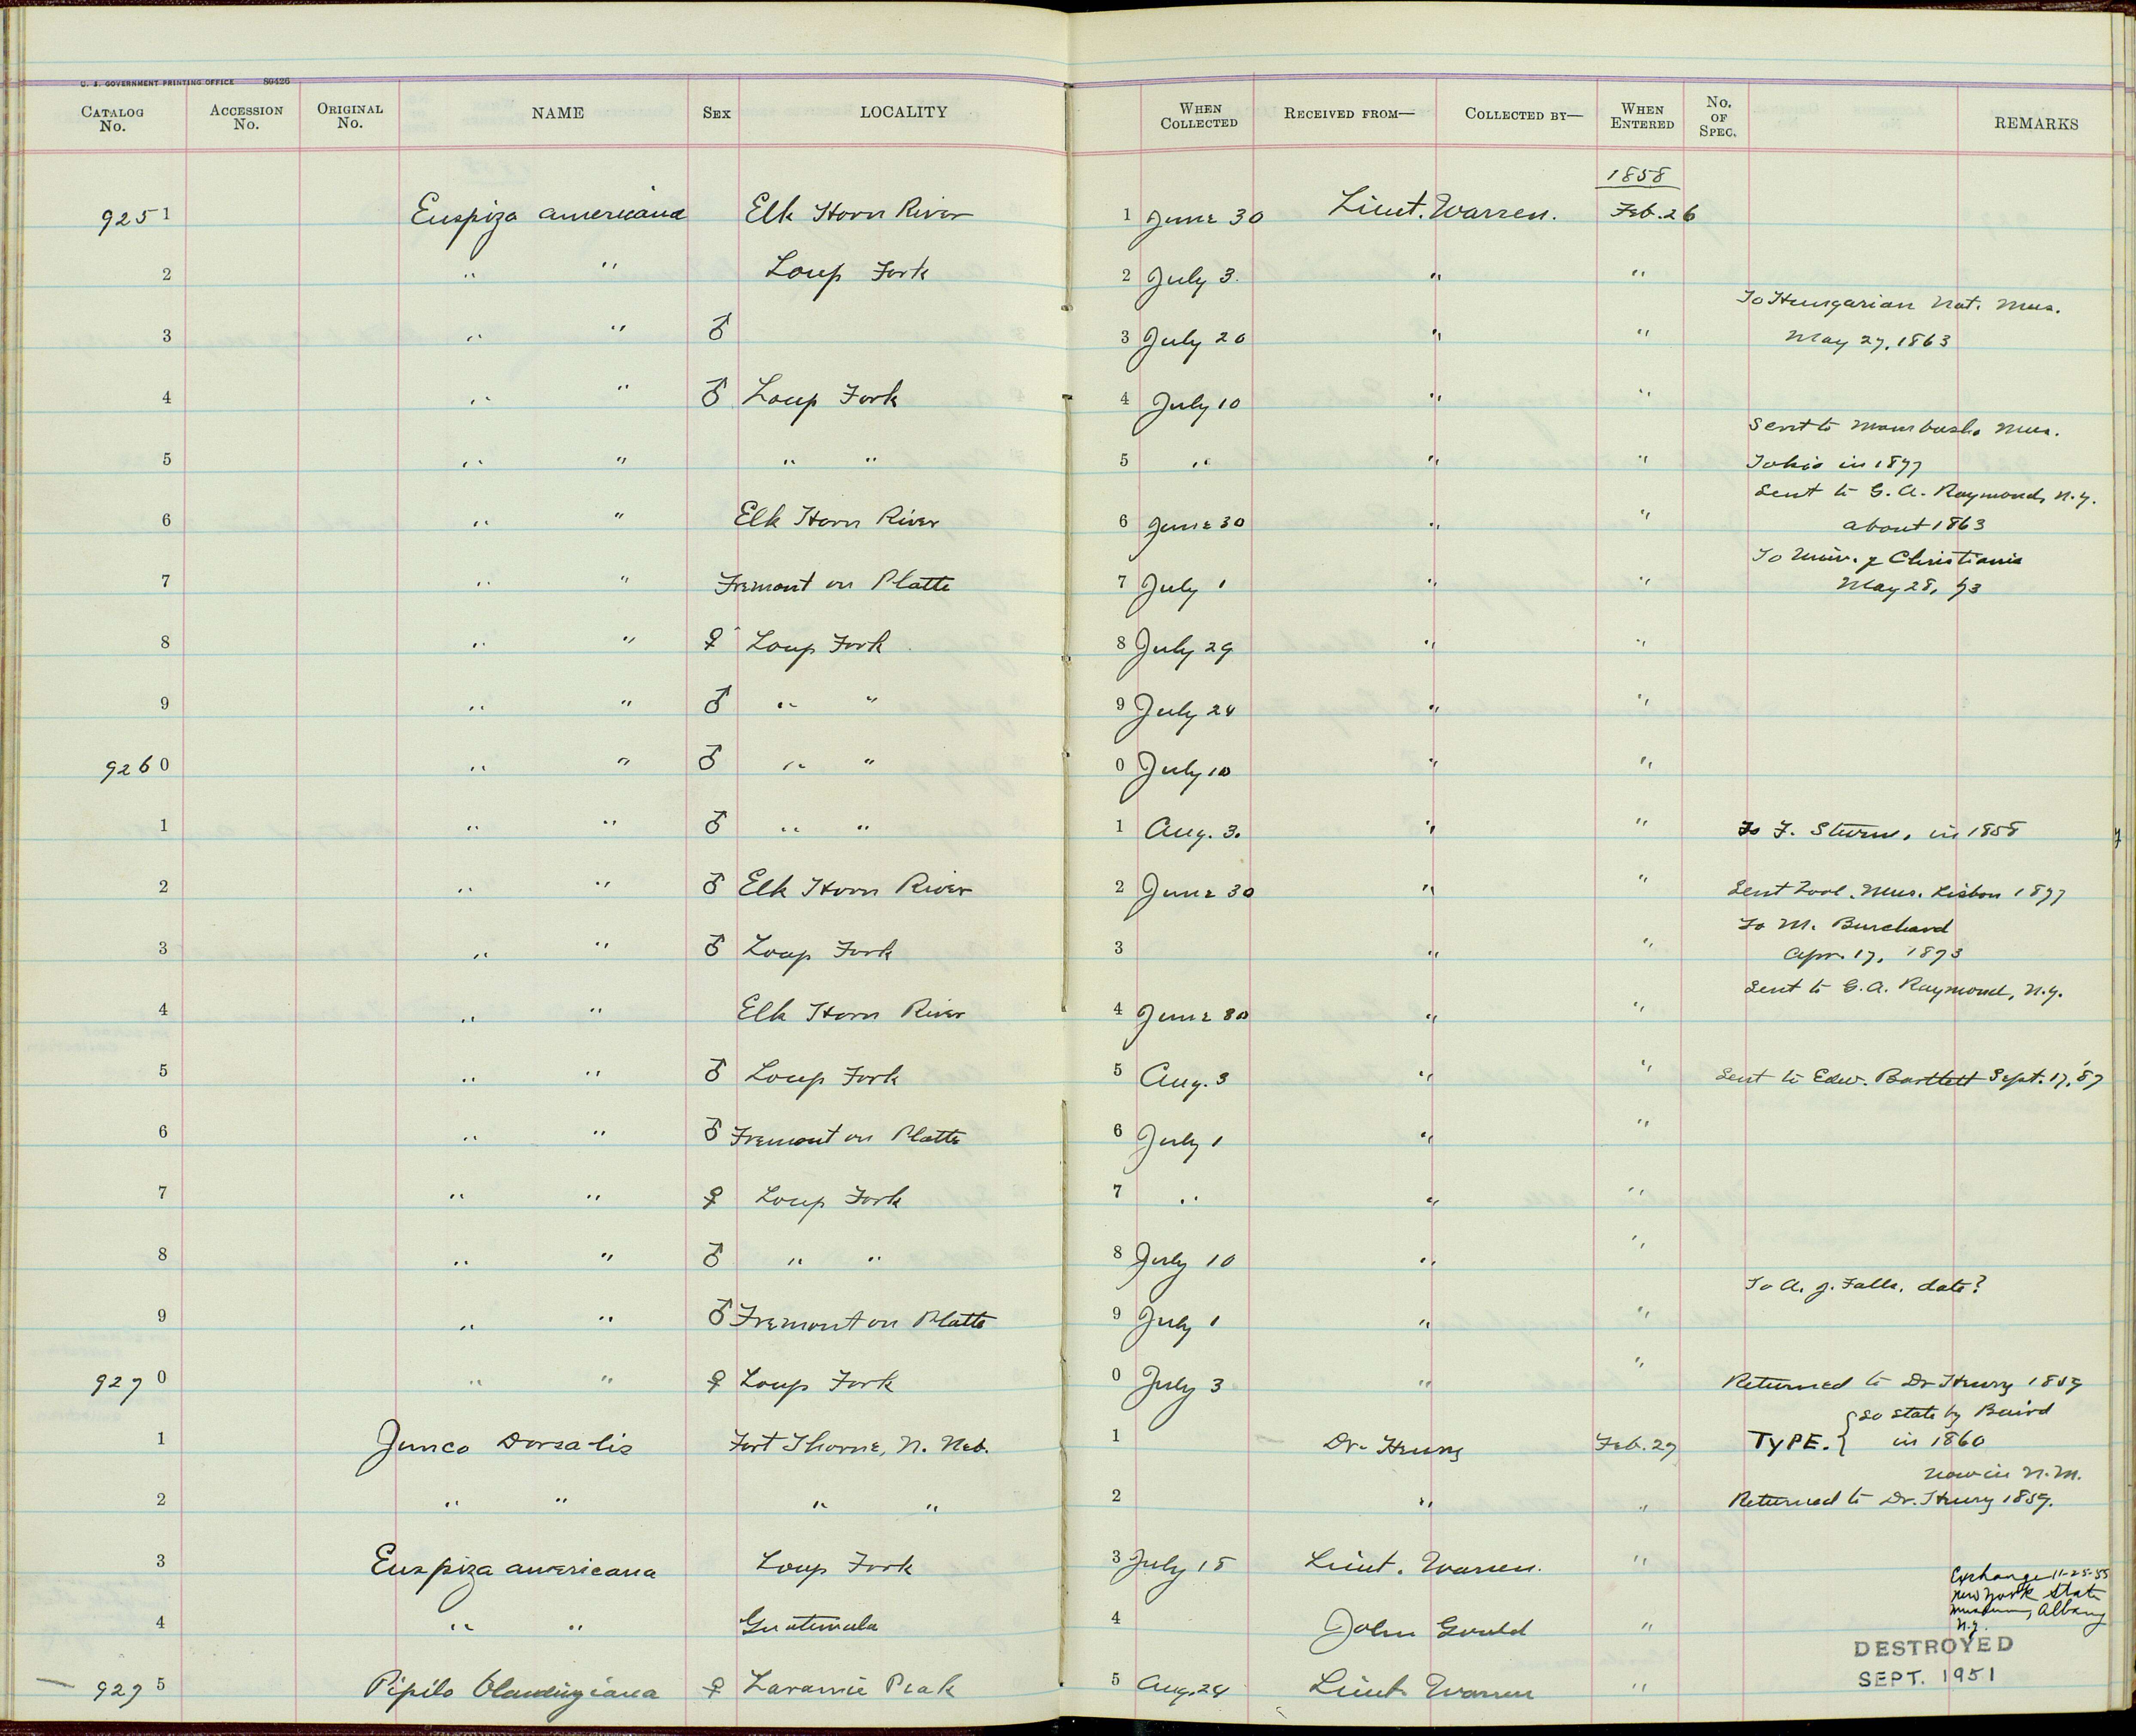 U. S. GOVERNMENT PRINTING OFFICE 89426
CATALOG No. ACCESSION No. ORIGINAL No. NAME SEX LOCALITY WHEN COLLECTED RECEIVED FROM— COLLECTED BY— WHEN ENTERED No. OF SPEC. REMARKS
1858
9251 Euspiza americana Elk Horn River 1 June 30 Lieut. Warren. Feb. 26
2 " " Loup Fork 2 July 3. " "
To Hungarian Nat. Mus.
3 " " ♂ 3 July 20 " " May 27, 1863
4 " " ♂ Loup Fork 4 July 10 " "
Sent to Mus.
5 " " " " 5 " " " Tokio in 1877
Sent to G. A. Raymond, N.Y.
6 " " Elk Horn River 6 June 30 " " about 1863
To Univ. of Christiania
7 " " Fremont on Platte 7 July 1 " " May 28, 73
8 " " ♀ Loup Fork 8 July 29 " "
9 " " ♂ " " 9 July 24 " "
9260 " " ♂ " " 0 July 10 " "
1 " " ♂ " " 1 Aug. 3. " " To F. Sturm, in 1858
2 " " ♂ Elk Horn River 2 June 30 " " Sent Zool. Mus. Lisbon 1877
To M. Burchard
3 " " ♂ Loup Fork 3 " " Apr. 17, 1873
Sent to G. A. Raymond, N.Y.
4 " " Elk Horn River 4 June 30 " "
5 " " ♂ Loup Fork 5 Aug. 3 " " Sent to Edw. Bartlett Sept. 17, '87
6 " " ♂ Fremont on Platte 6 July 1 " "
7 " " ♀ Loup Fork 7 " " "
8 " " ♂ " " 8 July 10 " "
To A. J. Falls. date?
9 " " ♂ Fremont on Platte 9 July 1 " "
9270 " " ♀ Loup Fork 0 July 3 " " Returned to Dr Henry 1859
so state by Baird
1 Junco Dorsalis Fort Thorne, N. Neb. 1 Dr. Henry Feb. 27 TYPE. { in 1860
now in N.M.
2 " " " " 2 " " Returned to Dr. Henry 1859.
3 Euspiza americana Loup Fork 3 July 15 Lieut. Warren. "
Exchange 11-25-55
New York State
Museum, Albany
N.Y.
4 " " Guatemala 4 John Gould "
DESTROYED
SEPT. 1951
9275 Pipilo 5 ♀ Laramie Peak 5 Aug. 24 Lieut. Warren "